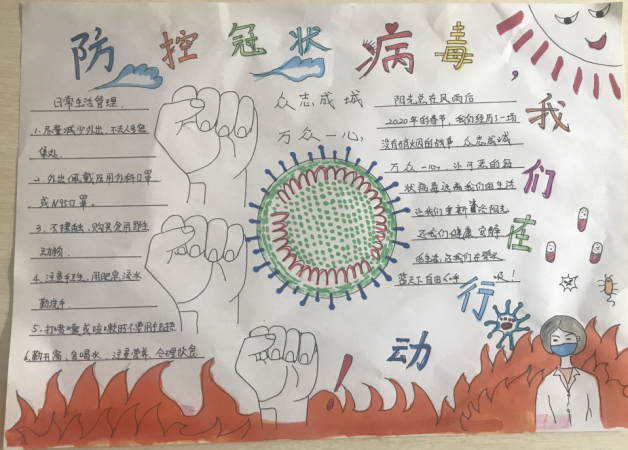 防控冠状病毒，我们在行动！
日常生活管理
1. 尽量减少外出，不去人多密
集处。
2. 外出佩戴医用外科口罩
或N95口罩。
3. 不接触、购买食用野生
动物。
4. 注意卫生，用肥皂，流水
勤洗手。
5. 打喷嚏或咳嗽时不要用手去捂
6. 勤开窗，多喝水，注意营养，合理饮食
众志成城
万众一心，
阳光总在风雨后
2020年的春节，我们经历了一场
没有硝烟的战争，众志成城
万众一心，
状病毒远离我们的生活
让我们重新
还我们健康
让我们在碧水
蓝天下自由